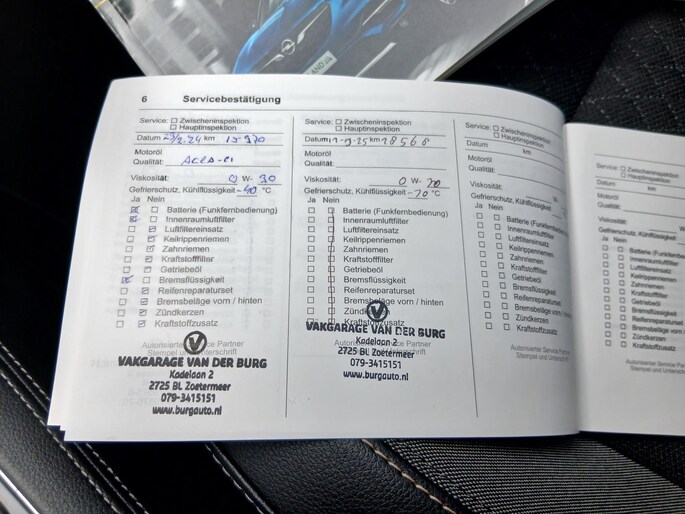 6 Servicebestätigung
Service: Zwischeninspektion
Hauptinspektion
Datum 23/2.24 km 15-970
Motoröl
Qualität:
Viskosität: 0 W- 30
Gefrierschutz, Kühlflüssigkeit - 40 °C
Ja Nein
Batterie (Funkfernbedienung)
Innenraumluftfilter
Luftfiltereinsatz
Keilrippenriemen
Zahnriemen
Kraftstofffilter
Getriebeöl
Bremsflüssigkeit
Reifenreparaturset
Bremsbeläge vorn / hinten
Zündkerzen
Kraftstoffzusatz
Autorisierter Service Partner
Stempel und Unterschrift
VAKGARAGE VAN DER BURG
Kadelaan 2
2725 BL Zoetermeer
079-3415151
www.burgauto.nl
Service: Zwischeninspektion
Hauptinspektion
Datum km 18568
Motoröl
Qualität:
Viskosität: 0 W- 20
Gefrierschutz, Kühlflüssigkeit - 20 °C
Ja Nein
Batterie (Funkfernbedienung)
Innenraumluftfilter
Luftfiltereinsatz
Keilrippenriemen
Zahnriemen
Kraftstofffilter
Getriebeöl
Bremsflüssigkeit
Reifenreparaturset
Bremsbeläge vorn / hinten
Zündkerzen
Kraftstoffzusatz
VAKGARAGE VAN DER BURG
Kadelaan 2
2725 BL Zoetermeer
079-3415151
www.burgauto.nl
Service: Zwischeninspektion
Hauptinspektion
Datum km
Motoröl
Qualität:
Viskosität: W-
Gefrierschutz, Kühlflüssigkeit °C
Ja Nein
Batterie (Funkfernbedienung)
Innenraumluftfilter
Luftfiltereinsatz
Keilrippenriemen
Zahnriemen
Kraftstofffilter
Getriebeöl
Bremsflüssigkeit
Reifenreparaturset
Bremsbeläge vorn / hinten
Zündkerzen
Kraftstoffzusatz
Autorisierter Service Partner
Stempel und Unterschrift
Service: Zwischeninspektion
Hauptinspektion
Datum km
Motoröl
Qualität:
Viskosität:
Gefrierschutz, Kühlflüssigkeit
Ja Nein
Batterie
Innenraumluftfilter
Luftfiltereinsatz
Keilrippenriemen
Zahnriemen
Kraftstofffilter
Getriebeöl
Bremsflüssigkeit
Reifenreparaturset
Bremsbeläge vorn
Zündkerzen
Kraftstoffzusatz
Autorisierter Service
Stempel und